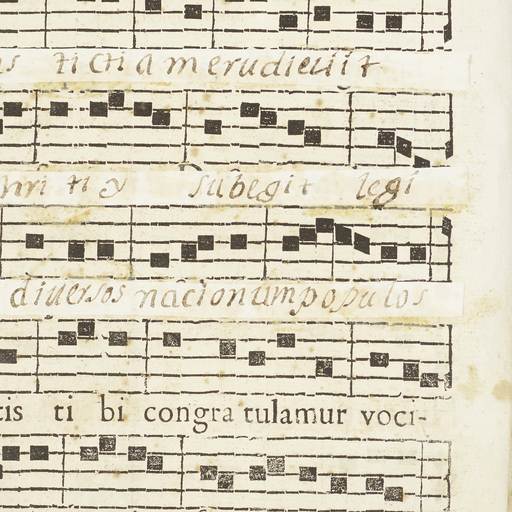 ti cti am erudieuit
ti y subegit legi
diuersos nacionum populos
tis ti bi congra tulamur voci-